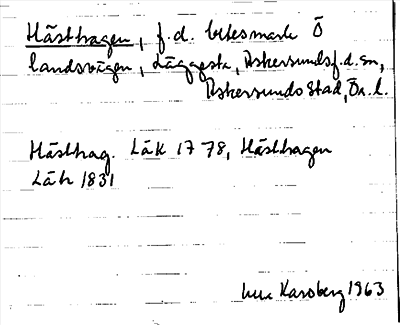 Hästhagen, f.d. betesmark Ö
landsvägen, Läggesta, Askersunds f.d. sn,
Askersunds stad, Ör. l.
Hästhag. LäK 1778, Hästhagen
LäH 1831
Karsberg 1963